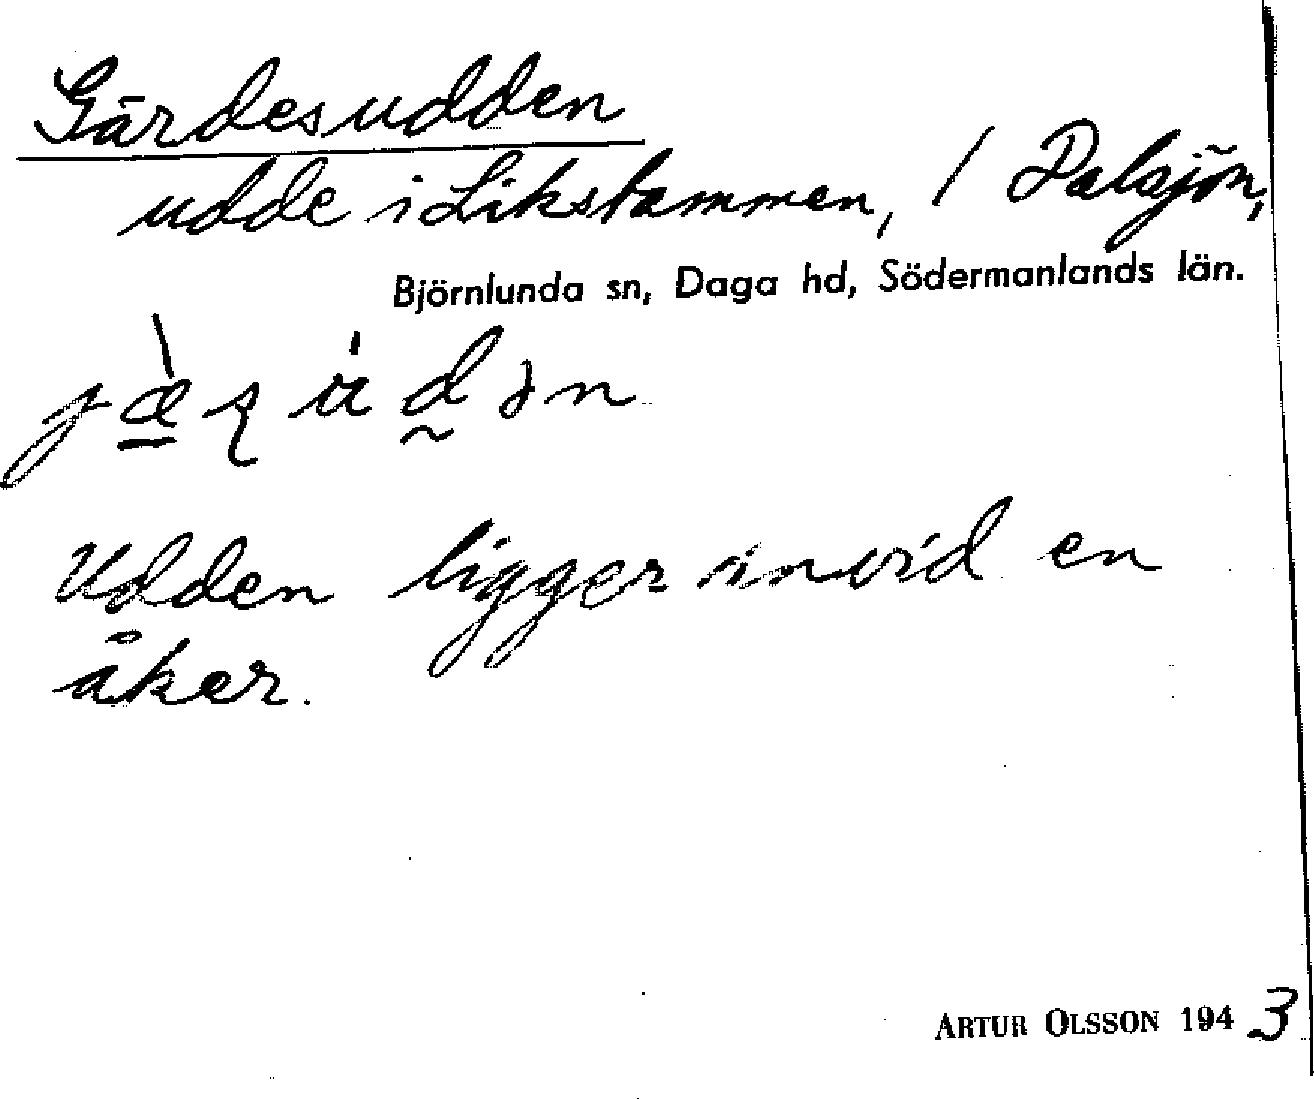 Gärdesudden
udde i Likstammen, / Dalsjön,
Björnlunda sn, Daga hd, Södermanlands län.
Udden ligger invid en
åker.
ARTUR OLSSON 1943